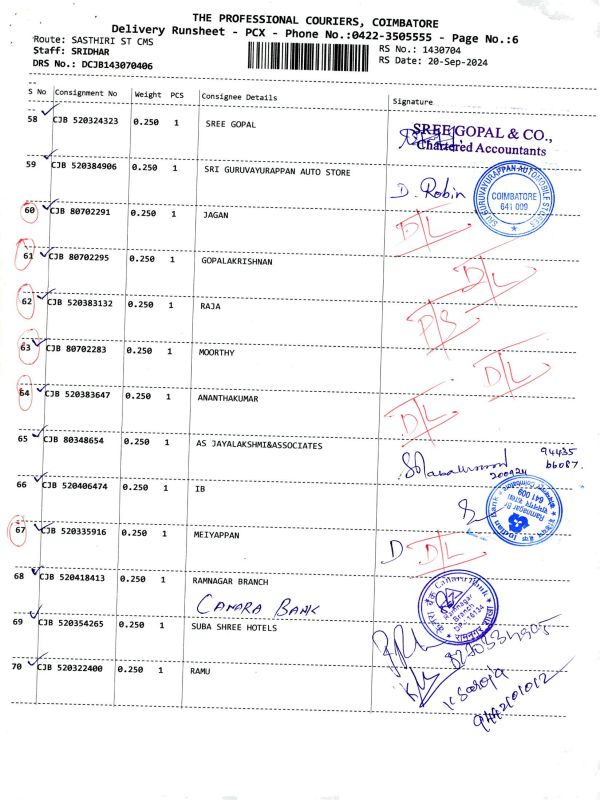 THE PROFESSIONAL COURIERS, COIMBATORE
Delivery Runsheet - PCX - Phone No.:0422-3505555 - Page No.:6
Route: SASTHIRI ST CMS RS No.: 1430704
Staff: SRIDHAR RS Date: 20-Sep-2024
DRS No.: DCJB143070406
S No Consignment No Weight PCS Consignee Details Signature
58 CJB 520324323 0.250 1 SREE GOPAL
SREE GOPAL & CO.,
Chartered Accountants
59 CJB 520384906 0.250 1 SRI GURUVAYURAPPAN AUTO STORE
D. Robin
SRI GURUVAYURAPPAN AUTOMOBILE STORES
COIMBATORE
641 009
60 CJB 80702291 0.250 1 JAGAN D/L
61 CJB 80702295 0.250 1 GOPALAKRISHNAN D/L
62 CJB 520383132 0.250 1 RAJA
63 CJB 80702283 0.250 1 MOORTHY D/L
64 CJB 520383647 0.250 1 ANANTHAKUMAR D/L
65 CJB 80348654 0.250 1 AS JAYALAKSHMI&ASSOCIATES
94435
66087
200924
66 CJB 520406474 0.250 1 IB
Indian Bank
641 009
67 CJB 520335916 0.250 1 MEIYAPPAN D D/L
68 CJB 520418413 0.250 1 RAMNAGAR BRANCH
CANARA BANK
Canara Bank
Ramnagar
Branch
69 CJB 520354265 0.250 1 SUBA SHREE HOTELS
70 CJB 520322400 0.250 1 RAMU
K Saroja